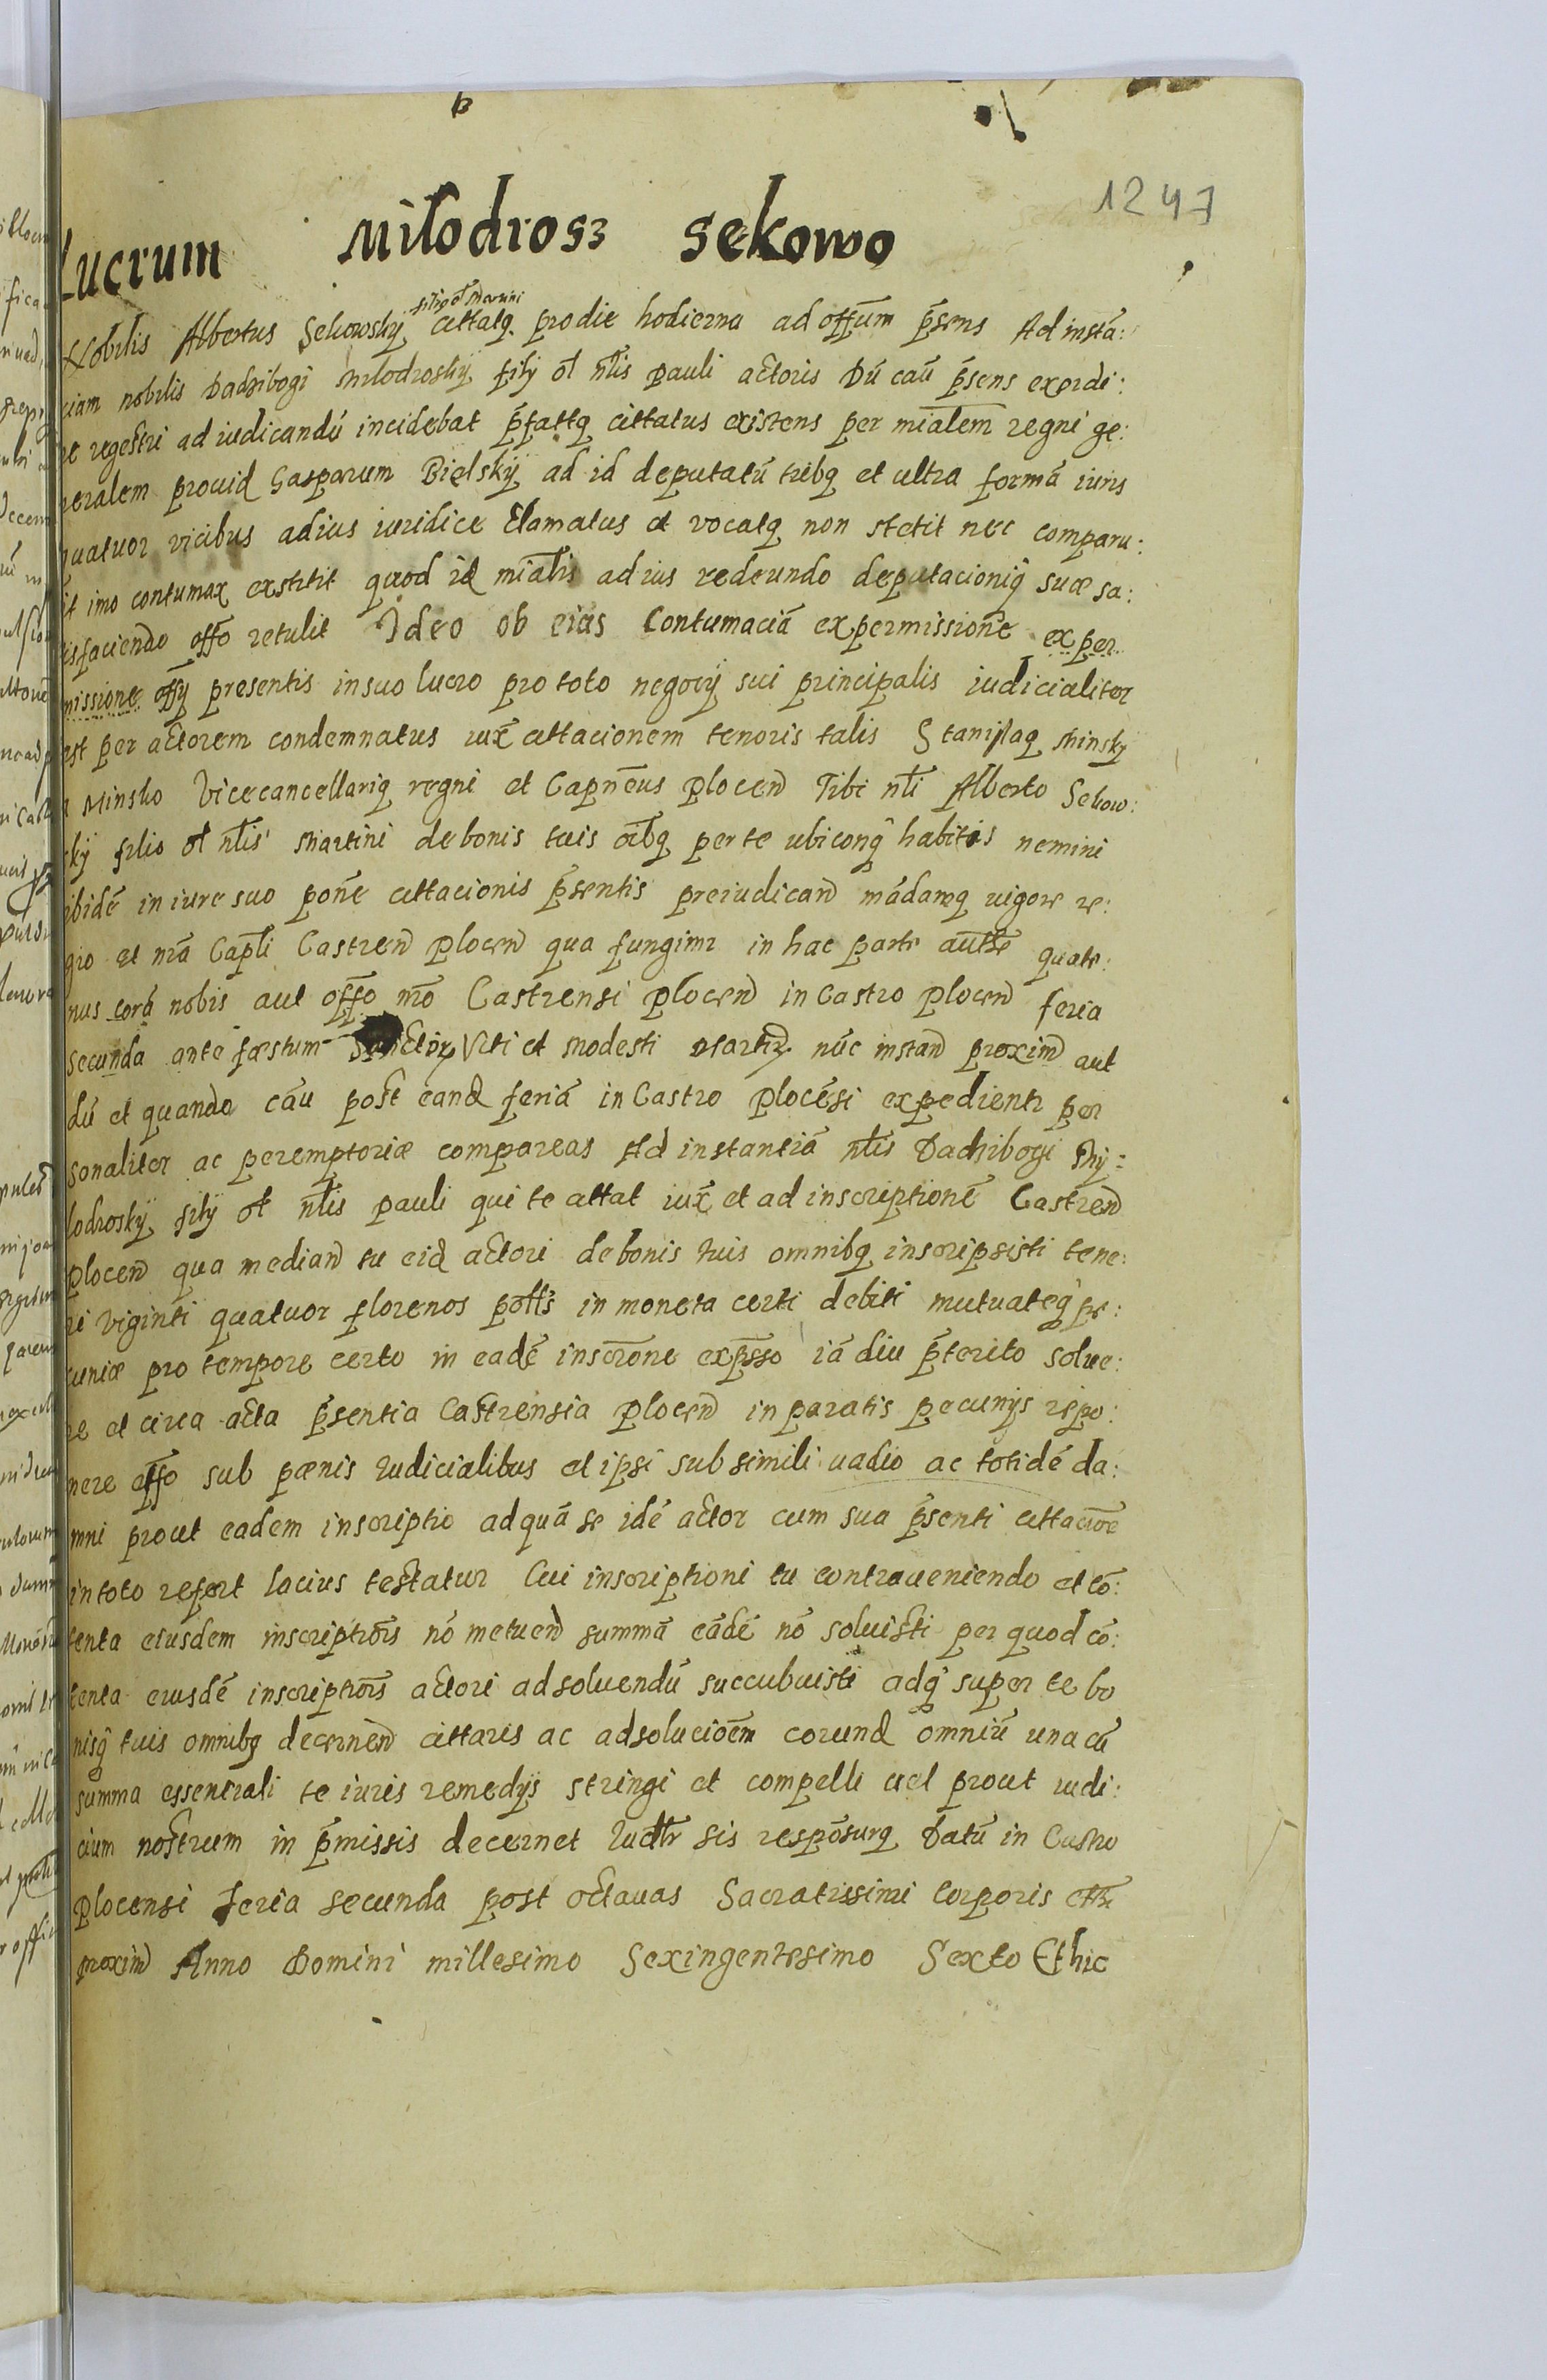 1247
Lucrum Miłodrosz Sekowo
filio ol Martini
Nobilis Albertus Sekowskÿ cittatq prodie hodierna ad offum p̃sens Ad instã:
ciam nobilis Dadzibogi Milodroskÿ filÿ ol nlis Pauli actoris Dũ caũ p̃sens exordi:
ne regestri ad iudicandũ incidebat p̃fattq cittatus existens per mialem regni ge:
neralem prouid Gasparum Bielskÿ ad id deputatũ tribq et ultra formã iuris
quatuor vicibus ad ius iuridice Clamatus et vocatq non stetit nec comparu:
it imo contumax exstitit quod id mialis ad ius redeundo deputacioniq suæ sa:
tisfaciendo offo retulit Ideo ob eius Contumaciã expermissione ex per
missione offÿ presentis in suo lucro pro toto negocÿ sui principalis iudicialiter
est per actorem condemnatus iux̃ cittacionem tenoris talis Stanislaq Minskÿ
a Minsko Vicecancellariq regni et Capneus Plocen Tibi nli Alberto Sekow:
skÿ filio ol nlis Martini de bonis tuis oibq per te ubiconq̃ habitis nemini
ibidẽ in iure suo pone cittacionis p̃sentis preiudicand mãdamq uigore re:
gio et nrã Capli Castren Plocen qua fungimr in hac parte autte quate:
nus corã nobis aut offo nro Castrensi Plocen in Castro Plocen feria
secunda ante fæstum Sanctor Viti et Modesti Martir nũc instan proxim aut
dũ et quando cãu post eand feriã in Castro Plocẽsi expedientr per
sonaliter ac peremptoriæ compareas Ad instantiã nlis Dadzibogi Mÿ:
lodroskÿ filÿ ol nlis Pauli qui te cittat iux̃ et ad inscriptionẽ Castren
Plocen qua median tu eid actori de bonis tuis omnibq inscripsisti tene:
ri viginti quatuor florenos polls in moneta certi debiti mutuateq̃ pe:
cuniæ pro tempore certo in eadẽ inscrone exp̃sso iã diu p̃terito solue:
re et circa acta p̃sentia Castrensia Plocen in paratis pecunÿs repo:
nere offo sub pænis Iudicialibus et ipsi sub simili uadio ac totidẽ da:
mni prout eadem inscriptio ad quã se idẽ actor cum sua p̃senti cittacioe
in toto refert lacius testatur Cui inscriptioni tu contraueniendo et cõ:
tenta eiusdem inscriptiõis nõ metuen summã eãdẽ nõ soluisti per quod cõ:
tenta eiusdẽ inscriptiõis actori ad soluendũ succubuisti adq̃ super te bo
nisq̃ tuis omnibq decernen cittaris ac ad soluciõem eorund omniũ una cũ
summa essentiali te iuris remedÿs stringi et compelli uel prout iudi:
cium nostrum in p̃missis decernet Iudltr sis respõsurq Datũ in Castro
Plocensi feria secunda post octauas Sacratissimi Corporis
proxim Anno Domini millesimo Sexingentesimo Sexto Et hic